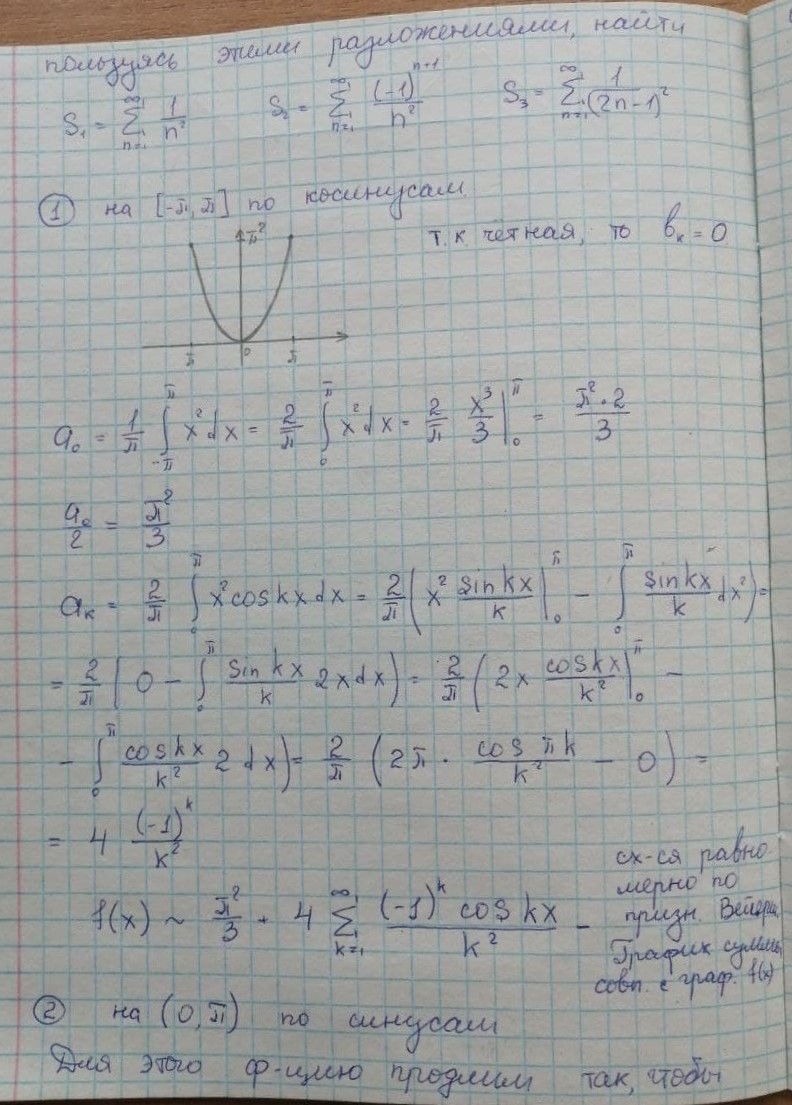 пользуясь этими разложениями, найти
S₁ = ∑_{n=1}^{∞} 1/n²   S₂ = ∑_{n=1}^{∞} (-1)^{n+1}/n²   S₃ = ∑_{n=1}^{∞} 1/(2n-1)²
① на [-π, π] по косинусам
π²
т.к. чётная, то b_k = 0
π 0 π
a₀ = 1/π ∫_{-π}^{π} x² dx = 2/π ∫_0^π x² dx = 2/π x³/3 |_0^π = π²·2/3
a₀/2 = π²/3
a_k = 2/π ∫_0^π x² cos kx dx = 2/π ( x² sin kx/k |_0^π - ∫_0^π sin kx/k dx² ) =
= 2/π ( 0 - ∫_0^π sin kx/k 2x dx ) = 2/π ( 2x cos kx/k² |_0^π -
- ∫_0^π cos kx/k² 2 dx ) = 2/π ( 2π · cos πk/k² - 0 ) =
= 4 (-1)^k/k²
f(x) ~ π²/3 + 4 ∑_{k=1}^{∞} (-1)^k cos kx/k² -
сх-ся равно
мерно по
призн. Вейерш
График суммы
совп. с граф. f(x)
② на (0, π) по синусам
Для этого ф-цию продлим так, чтобы